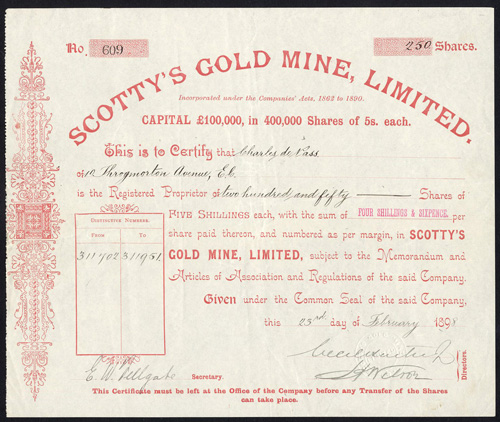 No. 609
250 Shares.
SCOTTY'S GOLD MINE, LIMITED.
Incorporated under the Companies' Acts, 1862 to 1890.
CAPITAL £100,000, in 400,000 Shares of 5s. each.
This is to Certify that Charles de Pass
of 10 Throgmorton Avenue, E.C.
is the Registered Proprietor of two hundred and fifty Shares of
FIVE SHILLINGS each, with the sum of FOUR SHILLINGS & SIXPENCE, per
share paid thereon, and numbered as per margin, in SCOTTY'S
GOLD MINE, LIMITED, subject to the Memorandum and
Articles of Association and Regulations of the said Company.
Given under the Common Seal of the said Company,
this 23rd day of February 1898
DISTINCTIVE NUMBERS.
FROM TO
311702 311951
Directors.
E. W. Fellgate
Secretary.
This Certificate must be left at the Office of the Company before any Transfer of the Shares
can take place.